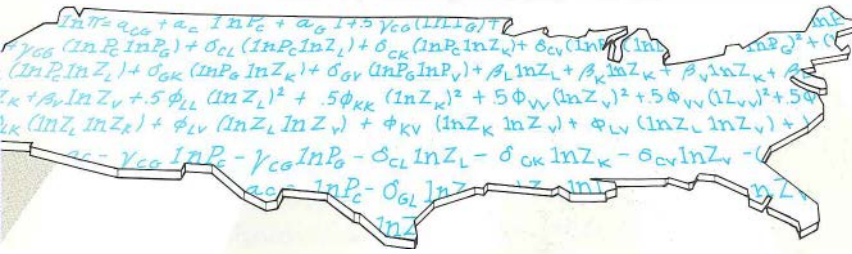 lnπ= a_CG + a_C lnP_C + a_G 1+.5 γ_CG (ln1_G) +
+γ_CG (lnP_C lnP_G) + δ_CL (lnP_C lnZ_L) + δ_CK (lnP_C lnZ_K) + δ_CV (ln lnP_G)² +
(lnP_C lnZ_L) + δ_GK (lnP_G lnZ_K) + δ_GV (lnP_G lnP_V) + β_L lnZ_L + β_K lnZ_K + β_V lnZ_K +
+ β_V lnZ_V + .5 Φ_LL (lnZ_L)² + .5Φ_KK (lnZ_K)² + .5Φ_VV (lnZ_V)² + .5Φ_VV (1Z_VV)² + .5Φ
(lnZ_L lnZ_R) + Φ_LV (lnZ_L lnZ_V) + Φ_KV (lnZ_K lnZ_V) + Φ_LV (lnZ_L lnZ_V) +
- γ_CG lnP_C - γ_CG lnP_G - δ_CL lnZ_L - δ_CK lnZ_K - δ_CV lnZ_V -
lnP_C - δ_GL lnZ
lnZ